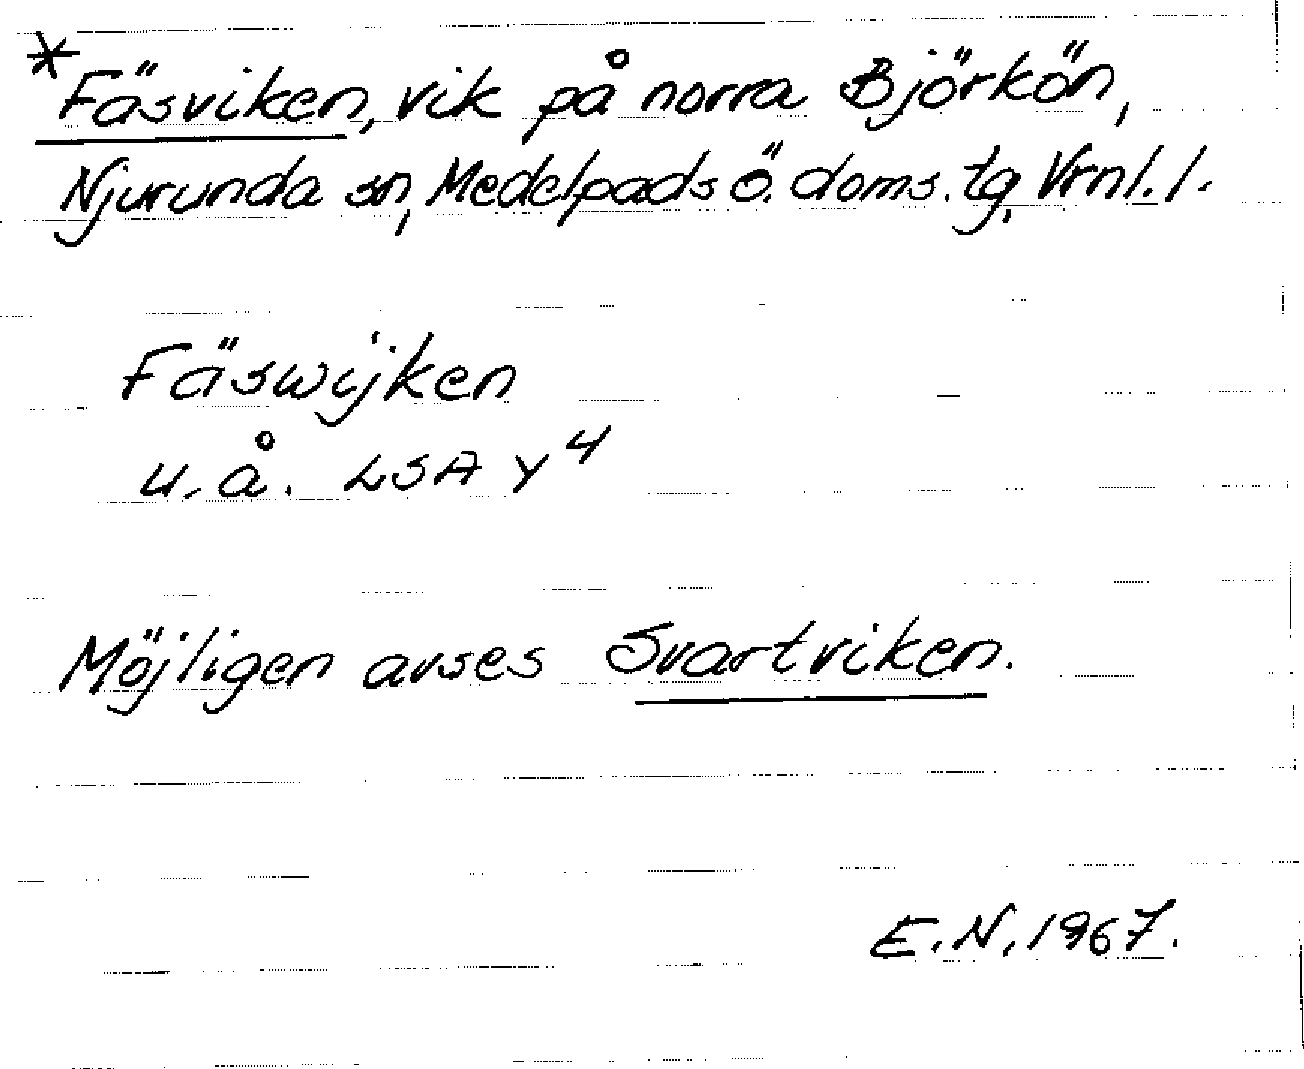 *Fäsviken, vik på norra Björkön,
Njurunda sn, Medelpads ö. doms. tg, Vrnl. l.
Fäswijken
u. å. LSA Y4
Möjligen avses Svartviken.
E.N. 1967.